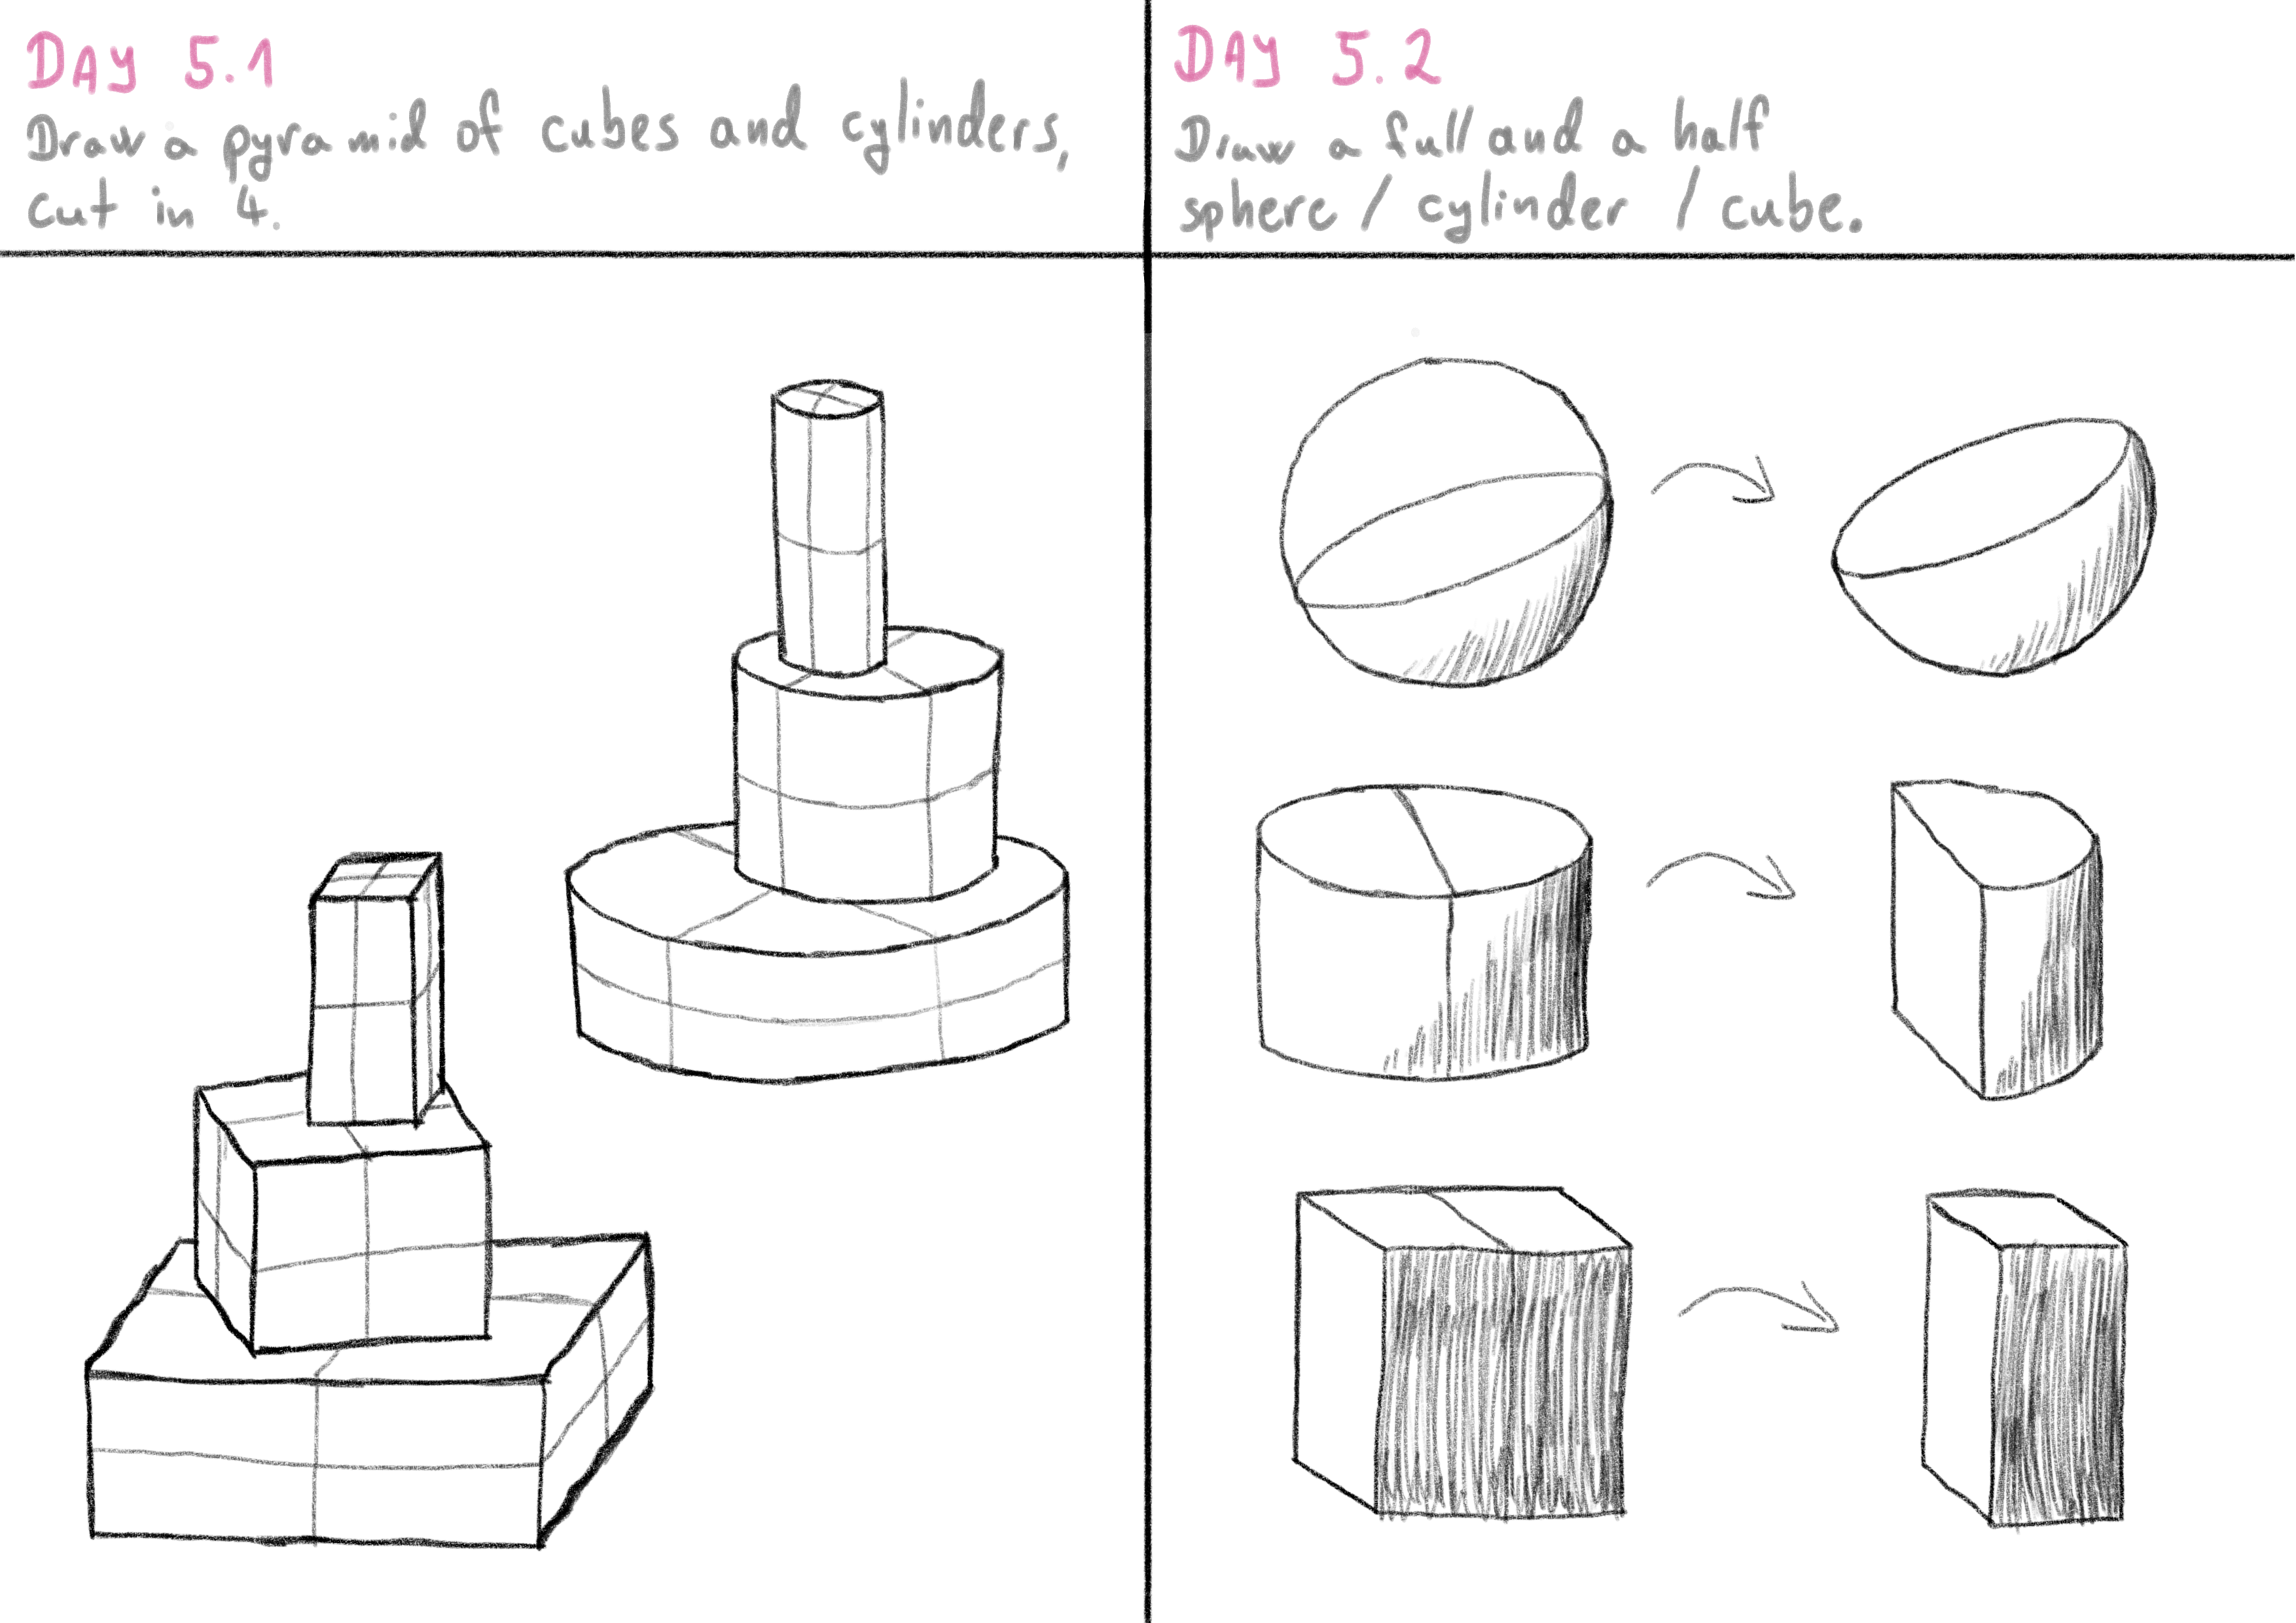 DAY 5.1
Draw a pyramid of cubes and cylinders,
cut in 4.
DAY 5.2
Draw a full and a half
sphere / cylinder / cube.